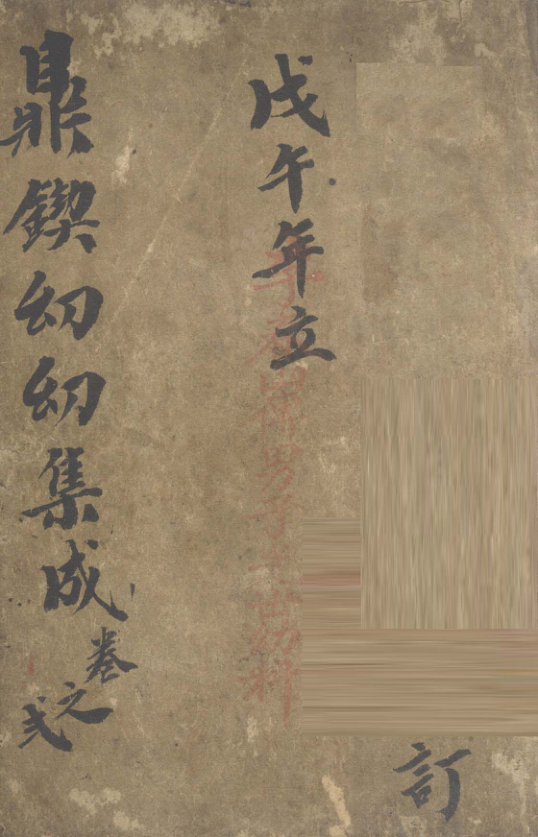 訂
戊午年立
鼎鍥幼幼集成卷之弍